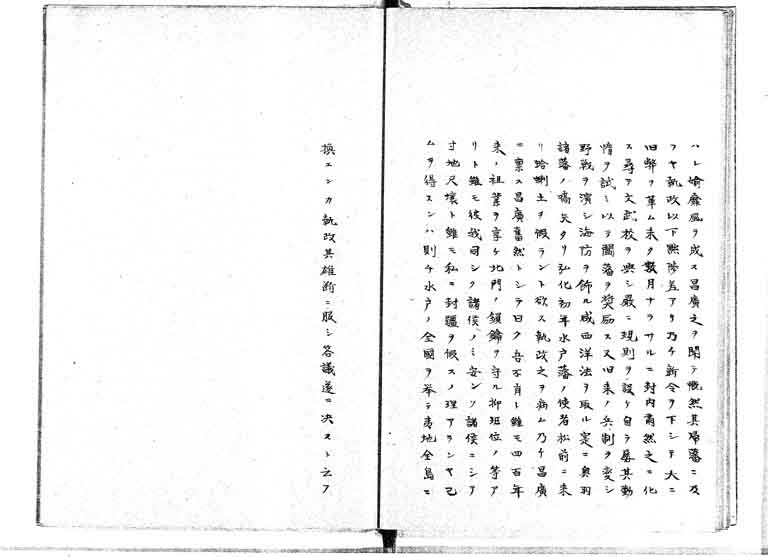 ハレ愉靡風ヲ成ス昌廣之ヲ聞テ慨然其帰藩ニ及
フヤ執政以下黜陟差アリ乃チ新令ヲ下シテ大ニ
旧弊ヲ革ム未タ数月ナラサルニ封内粛然之ニ化
ス尋テ文武校ヲ興シ厳ニ規則ヲ設ケ自ラ屡其勤
惰ヲ試ミ以テ闔藩ヲ奨励ス又旧来ノ兵制ヲ変シ
野戦ヲ演シ海防ヲ飾ル咸西洋法ヲ取ル寔ニ奥羽
諸藩ノ嚆矢タリ弘化初年水戸藩ノ使者松前ニ来
リ蛤唎土ヲ假ラント欲ス執政之ヲ病ム乃チ昌廣
ニ禀ス昌廣奮然トシテ曰ク吾不肖ト雖モ四百年
来ノ祖業ヲ享ケ北門ノ鎖鑰ヲ守ル抑班位ノ等ア
リト雖モ彼我同シク諸侯ノミ安ンソ諸侯ニシテ
寸地尺壌ト雖モ私ニ封疆ヲ假スノ理アランヤ已
ムヲ得スンハ則チ水戸ノ全國ヲ挙テ夷地全島ニ
換エンカ執政其雄断ニ服シ答議遂ニ决スト云フ